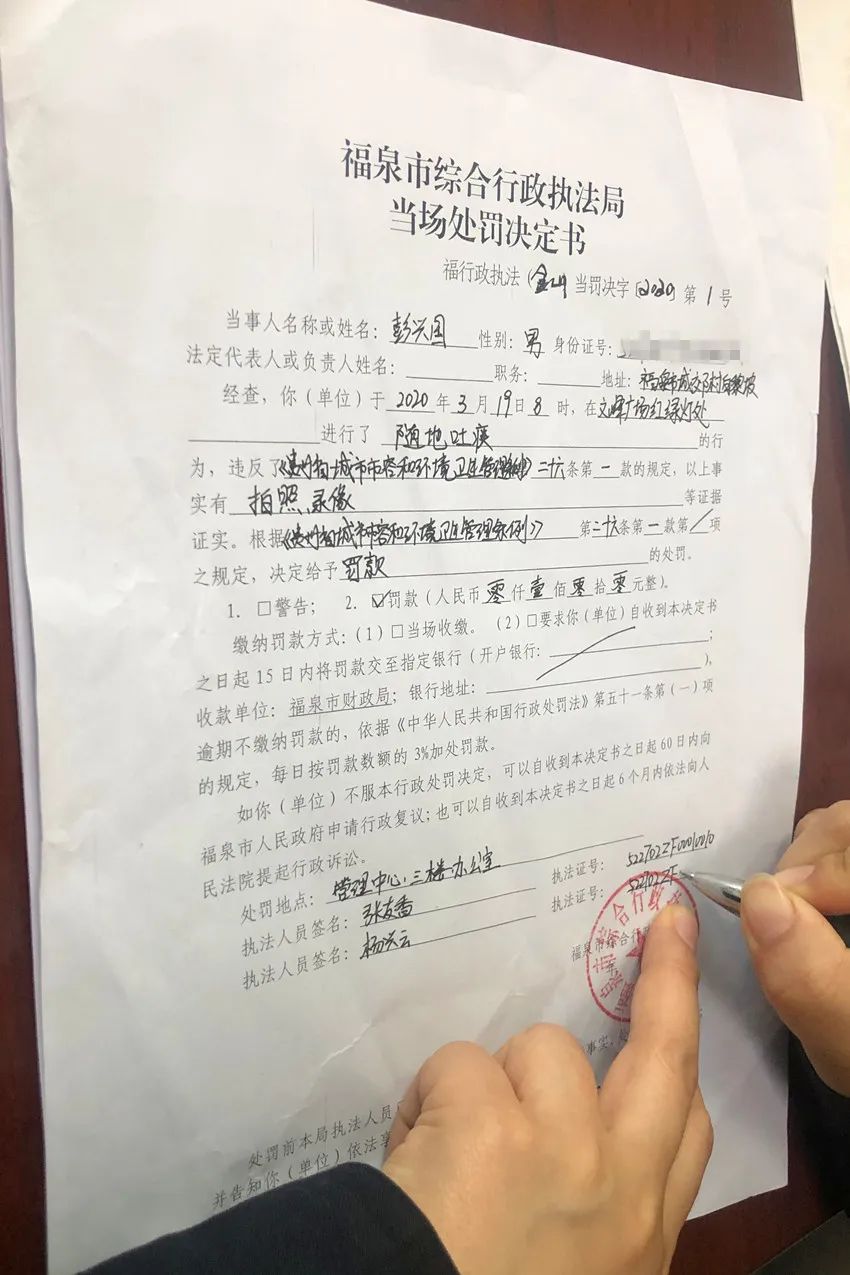 福泉市综合行政执法局
当场处罚决定书
福行政执法(金山)当罚决字[2020]第1号
当事人名称或姓名:彭兴国 性别:男 身份证号:
法定代表人或负责人姓名: 职务: 地址:福泉市城
经查,你(单位)于2020年3月19日8时,在文峰广场红绿灯处
进行了 随地吐痰 的行
为,违反了《贵州省城市市容和环境卫生管理条例》二十六条第一款的规定,以上事
实有 拍照、录像 等证据
证实。根据《贵州省城市市容和环境卫生管理条例》 第二十六条第一款第/项
之规定,决定给予罚款 的处罚。
1. □警告; 2. ☑罚款(人民币零仟壹佰零拾零元整)。
缴纳罚款方式:(1)□当场收缴。(2)□要求你(单位)自收到本决定书
之日起15日内将罚款交至指定银行(开户银行: ;
收款单位:福泉市财政局;银行地址: )。
逾期不缴纳罚款的,依据《中华人民共和国行政处罚法》第五十一条第(一)项
的规定,每日按罚款数额的3%加处罚款。
如你(单位)不服本行政处罚决定,可以自收到本决定书之日起60日内向
福泉市人民政府申请行政复议;也可以自收到本决定书之日起6个月内依法向人
民法院提起行政诉讼。
处罚地点:管理中心三楼办公室
执法人员签名:张友香 执法证号:522702ZF0010010
执法人员签名:杨兴云 执法证号:522702ZF
福泉市综合行
年
事实、处
处罚前本局执法人员
并告知你(单位)依法享